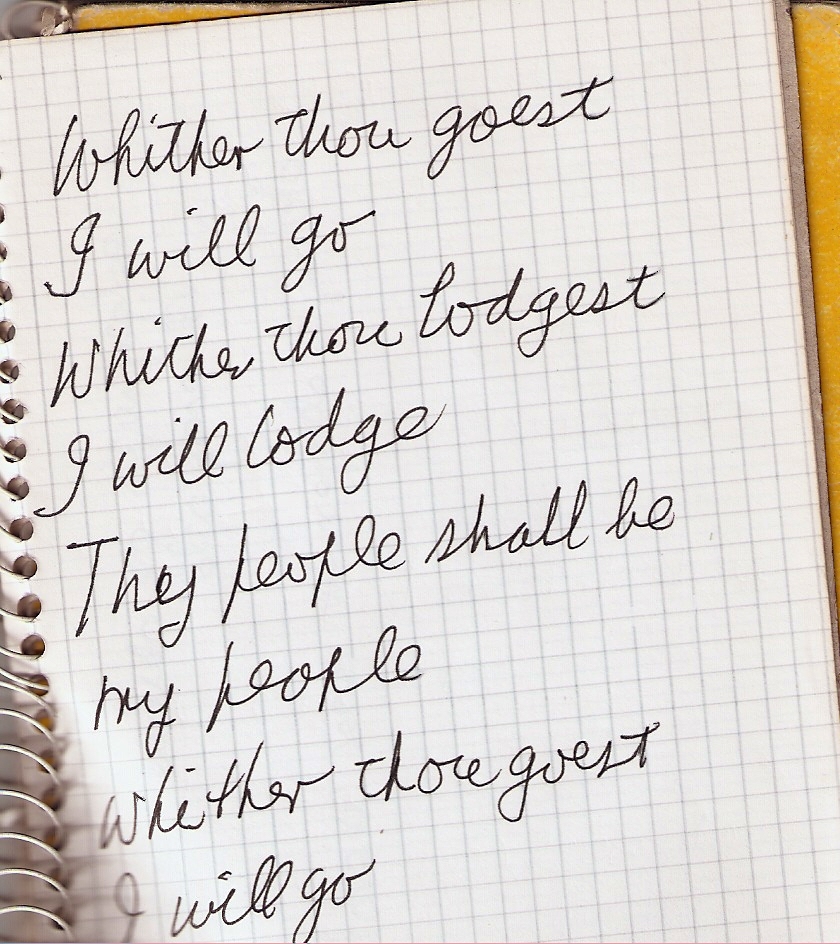 Whither thou goest
I will go
Whither thou lodgest
I will lodge
They people shall be
my people
whither thou goest
I will go